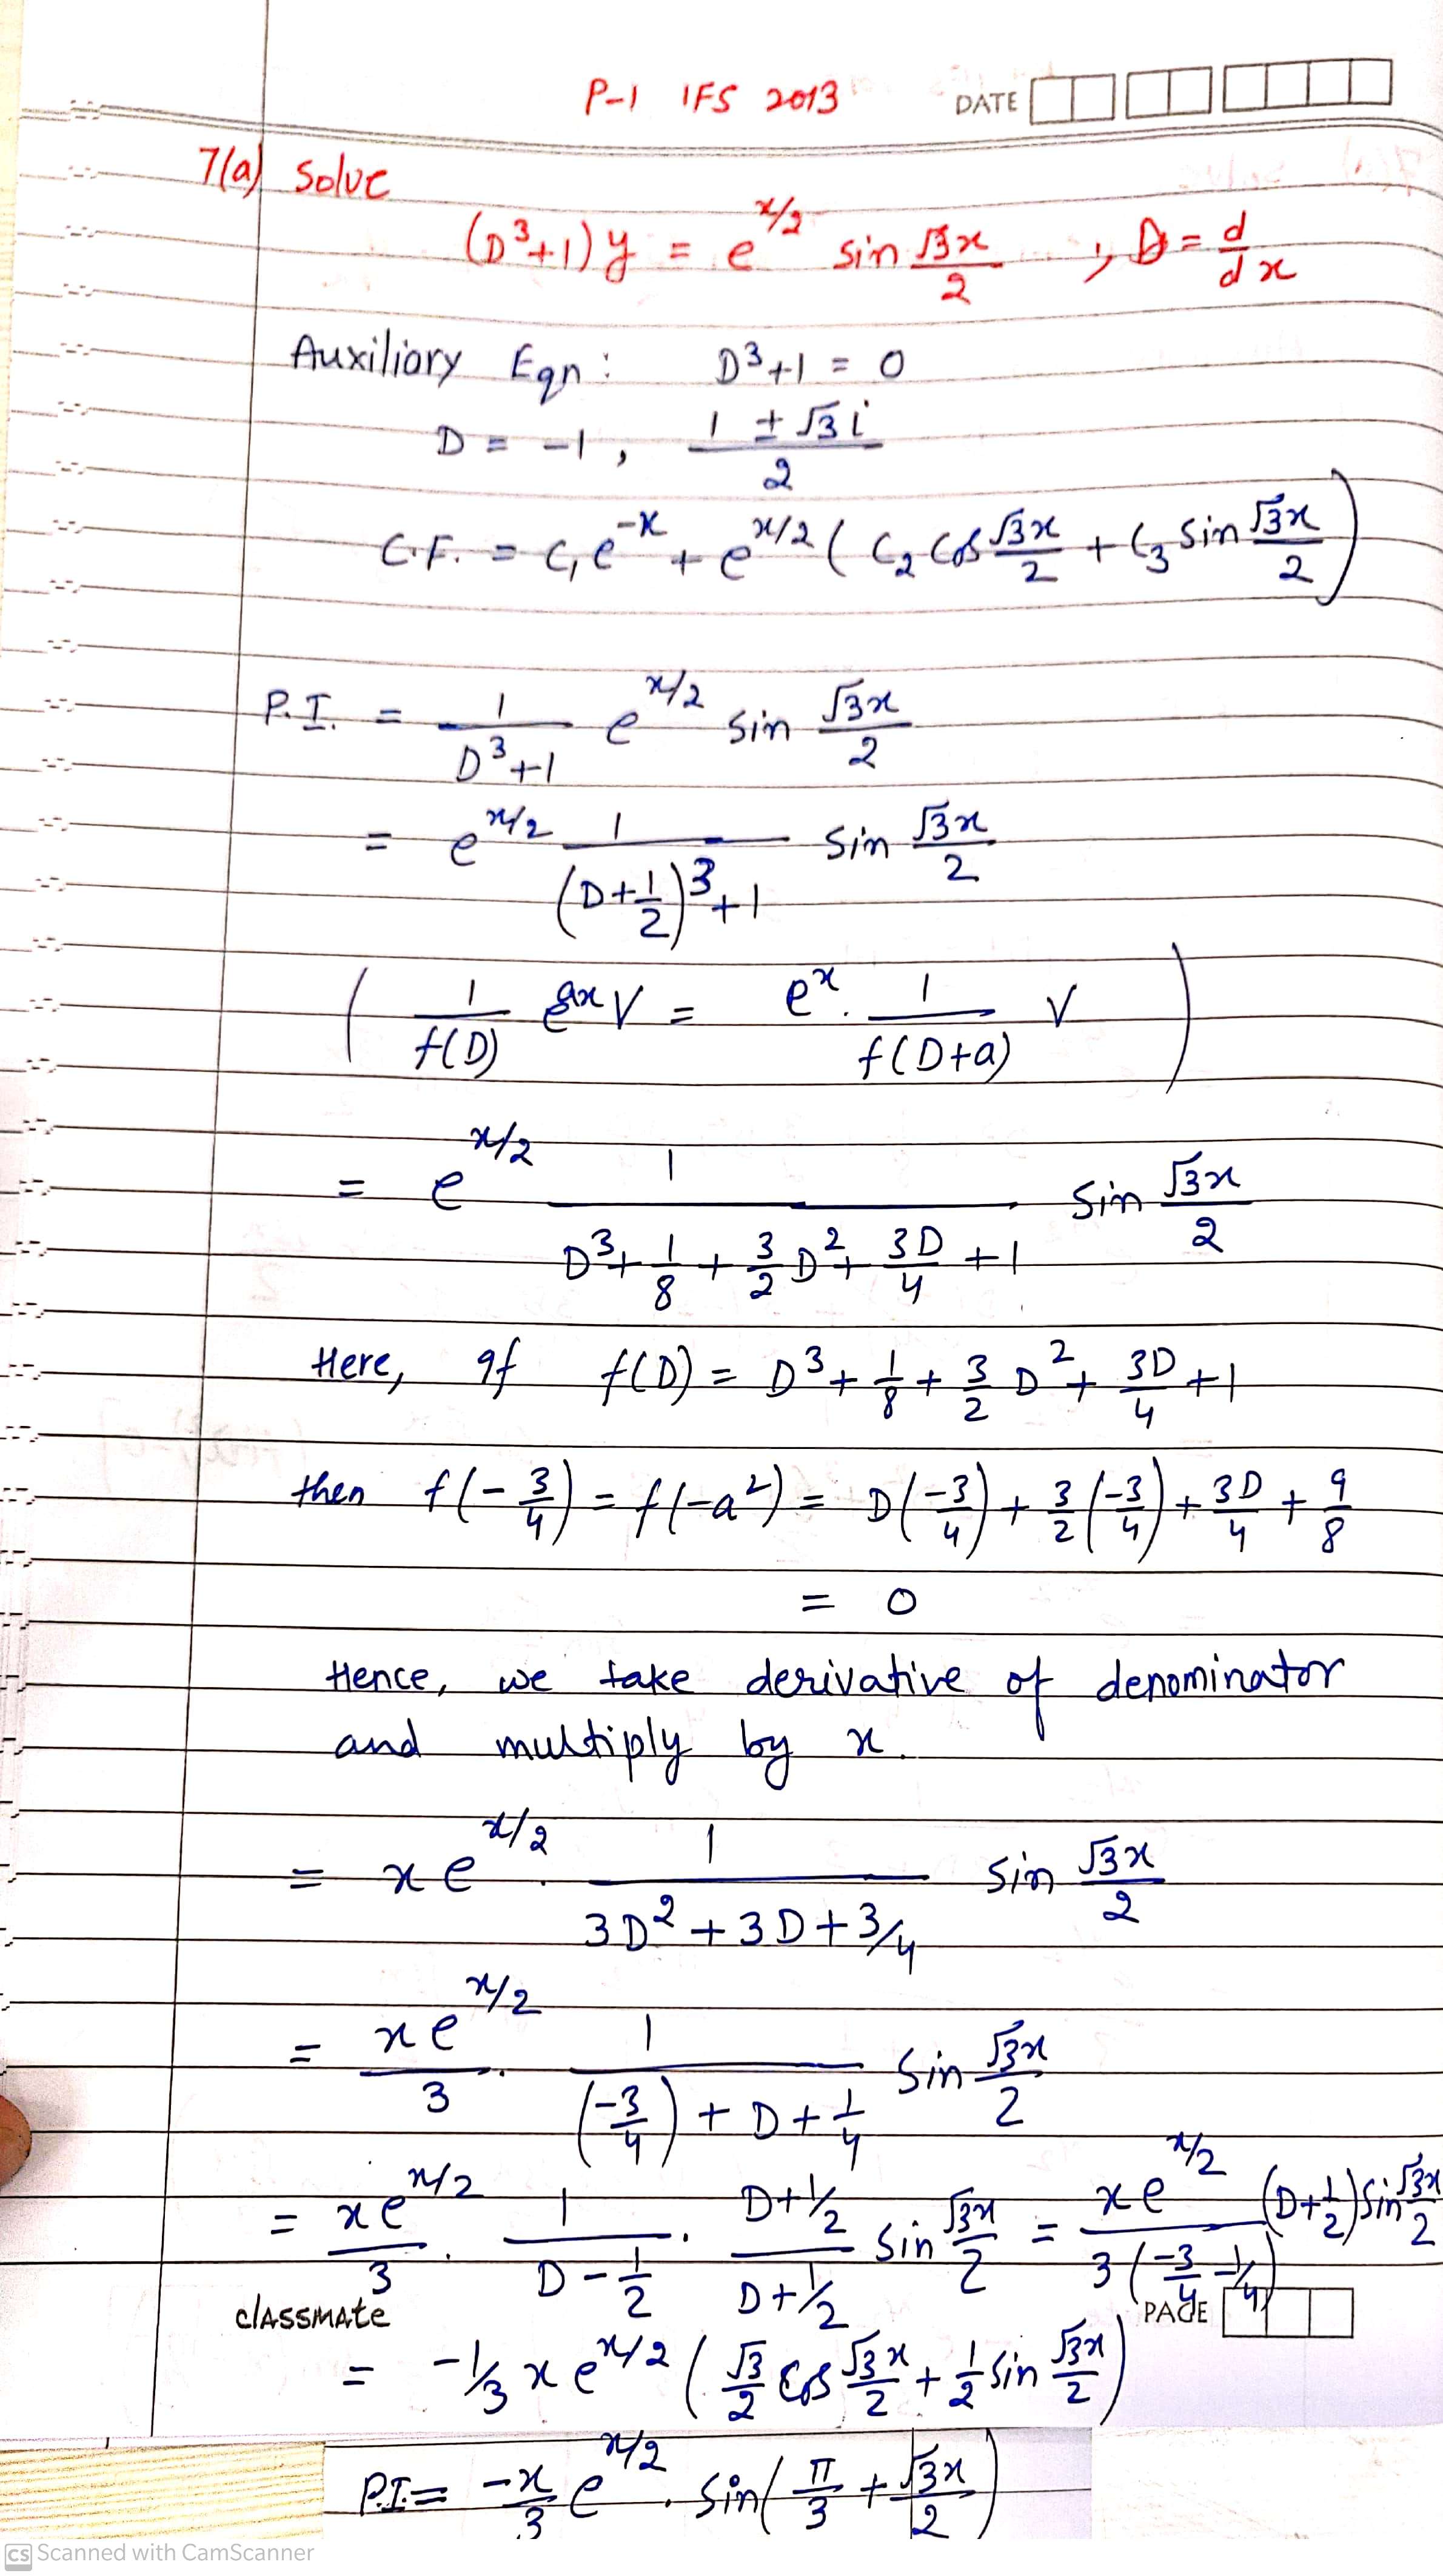 P-1 IFS 2013 DATE
7(a) Solve
(D³+1) y = e^(x/2) sin √3x/2 , D = d/dx
Auxiliary Eqn : D³+1 = 0
D = -1, (1 ± √3 i)/2
C.F. = C₁e^(-x) + e^(x/2) ( C₂ Cos √3x/2 + C₃ Sin √3x/2 )
P.I. = 1/(D³+1) e^(x/2) sin √3x/2
= e^(x/2) 1/((D+1/2)³+1) Sin √3x/2
( 1/f(D) e^(ax) V = e^x . 1/f(D+a) V )
= e^(x/2) 1/(D³+1/8+3/2 D²+3D/4+1) Sin √3x/2
Here, If f(D) = D³+1/8+3/2 D²+3D/4+1
then f(-3/4) = f(-a²) = D(-3/4)+3/2(-3/4)+3D/4+9/8
= 0
Hence, we take derivative of denominator
and multiply by x.
= x e^(x/2) . 1/(3D²+3D+3/4) Sin √3x/2
= x e^(x/2)/3 . 1/((-3/4)+D+1/4) Sin √3x/2
= x e^(x/2)/3 . 1/(D-1/2) . (D+1/2)/(D+1/2) Sin √3x/2 = x e^(x/2)/(3(-3/4-1/4)) (D+1/2) Sin √3x/2
classmate PAGE
= -1/3 x e^(x/2) ( √3/2 Cos √3x/2 + 1/2 Sin √3x/2 )
P.I = -x/3 e^(x/2) . Sin( π/3 + √3x/2 )
CS Scanned with CamScanner